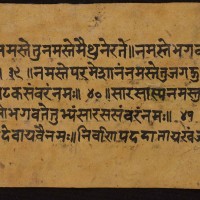 नमस्तेतुनमस्तेमैथुनेरते॥नमस्तेभगव
।३९॥नमस्तेपरमेशानंनमस्तेतुजगत्
टकसंवरंनमः॥४०॥सारसास्पनमस्तु
भगवतेतुभ्यंसारससंवरंनमः॥४१
देवायवैनमः॥निर्वाणपददातायरवंज